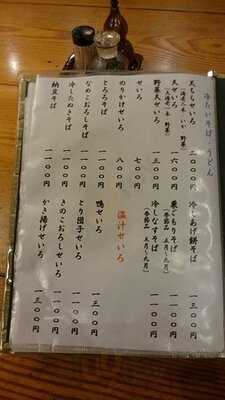 冷たいそば うどん
天ちらせいろ 二〇〇〇円
天せいろ 一六〇〇円
野菜天せいろ 一三〇〇円
せいろ 七〇〇円
のりかけせいろ 八〇〇円
とろろそば 一一〇〇円
なめこおろしそば 一一〇〇円
冷したぬきそば 一一〇〇円
納豆そば 一一〇〇円
冷しあげ餅そば 一一〇〇円
冷しなすそば
(季節品 五月〜九月)
温汁せいろ
鴨せいろ 一三〇〇円
とり団子せいろ
きのこおろしせいろ
かき揚げせいろ 一三〇〇円